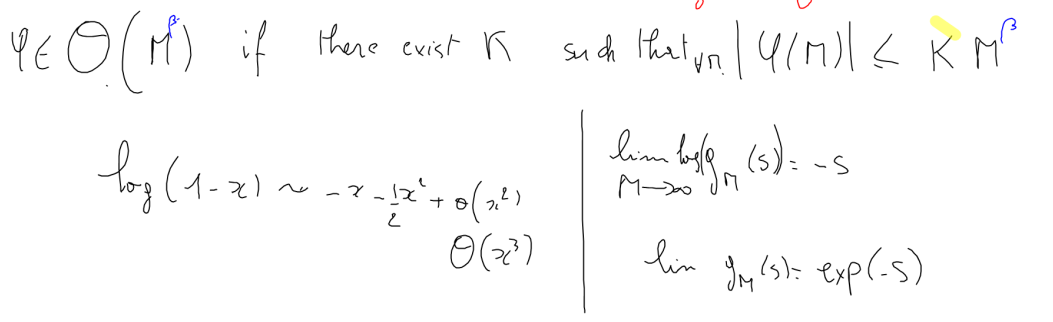 φ ∈ O(M^β) if there exist K such that ∀M |φ(M)| ≤ K M^β
log(1-x) ~ -x - 1/2 x² + o(x²)
O(x³)
lim log(g_M(s)) = -s
M→∞
lim g_M(s) = exp(-s)